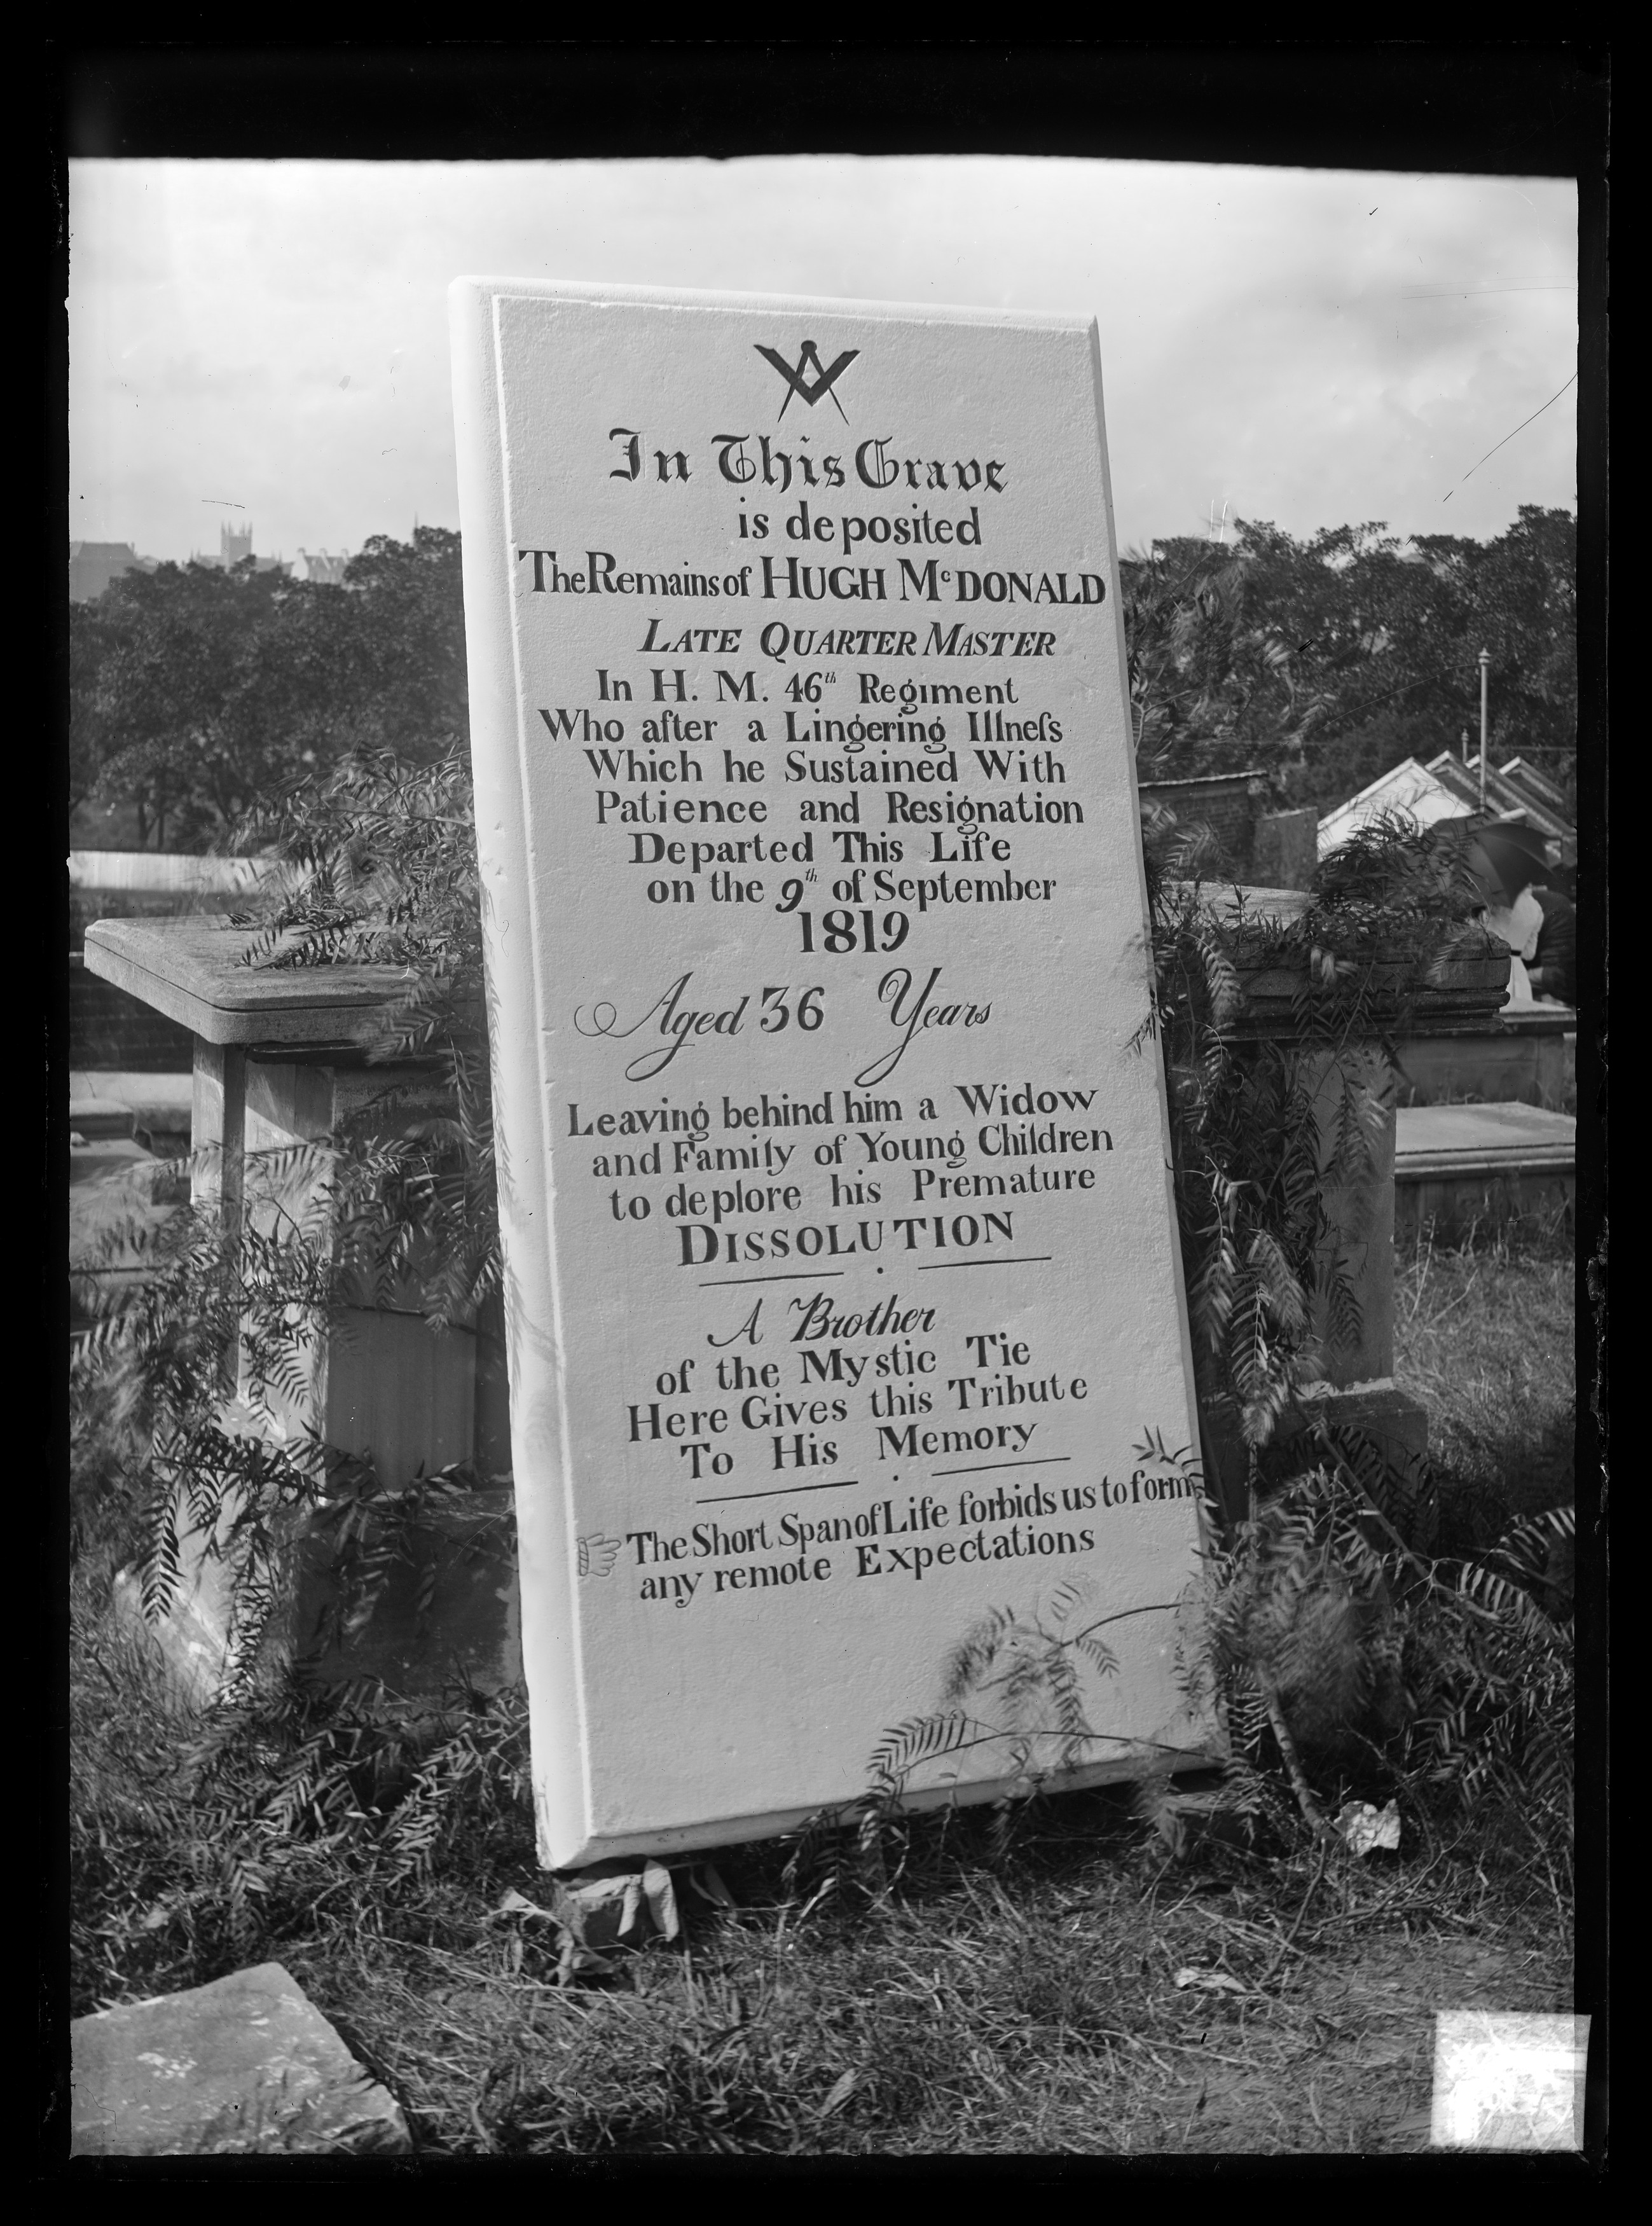 In This Grave
is deposited
The Remains of HUGH McDONALD
LATE QUARTER MASTER
In H. M. 46th Regiment
Who after a Lingering Illneſs
Which he Sustained With
Patience and Resignation
Departed This Life
on the 9th of September
1819
Aged 36 Years
Leaving behind him a Widow
and Family of Young Children
to deplore his Premature
DISSOLUTION
A Brother
of the Mystic Tie
Here Gives this Tribute
To His Memory
☞ The Short Span of Life forbids us to form
any remote Expectations